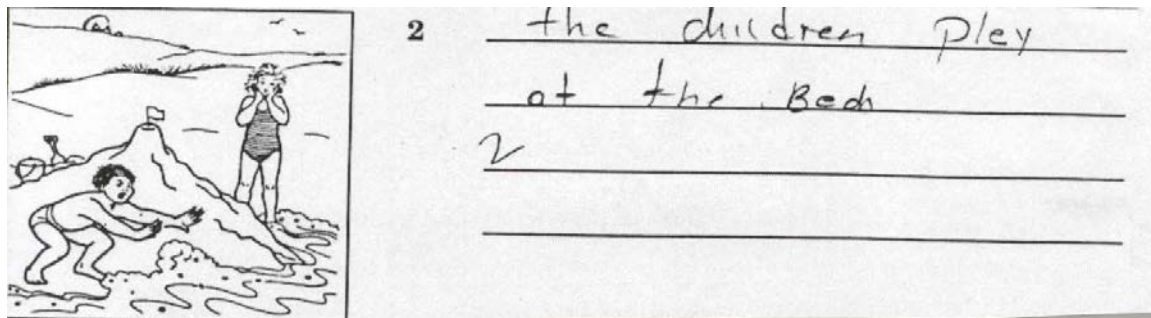 2 the children pley
at the Bech
2